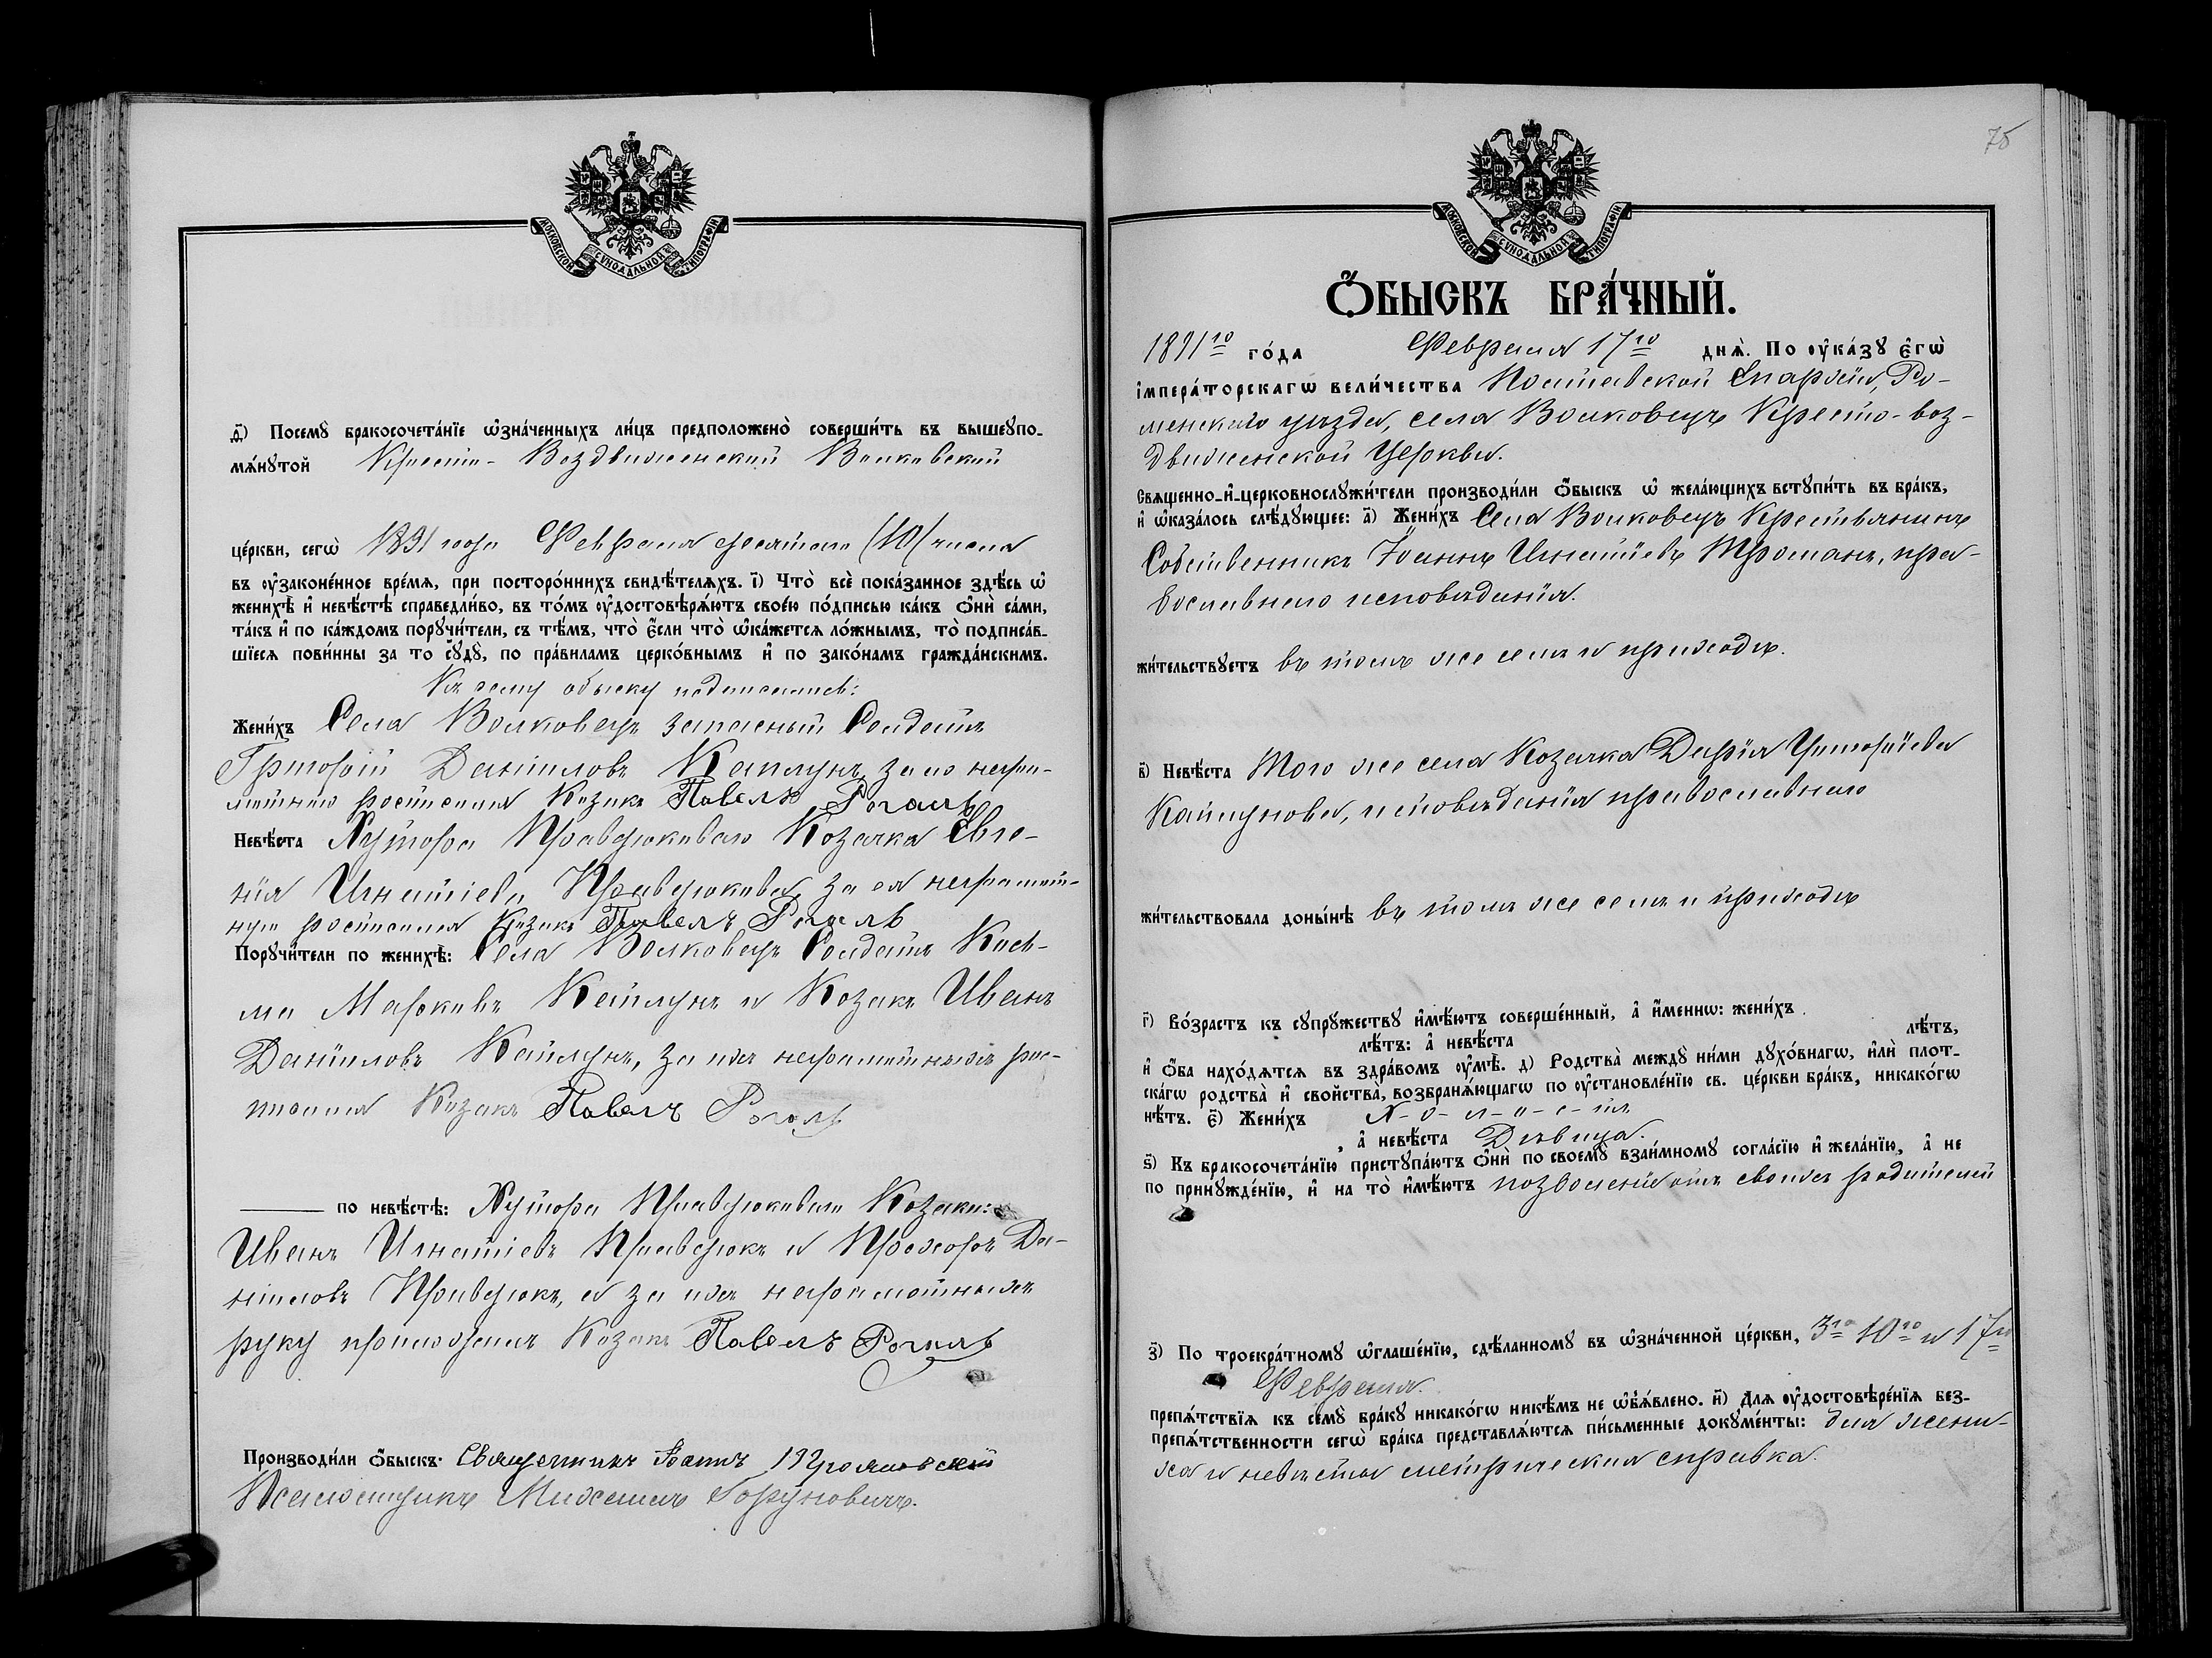 МОСКОВСКОЙ СѴНОДАЛЬНОЙ ТИПОГРАФІИ
д҃) Посемꙋ бракосочета́нїе ѡ҆зна́ченныхъ ли́цъ предположено̀ соверши́ть въ вышеꙋпо-
мѧ́нꙋтой Кресто-Воздвиженский Волковской
це́ркви, сегѡ̀ 1891 года Февраля десятого (10) числа
въ ᲂу҆законе́нное вре́мѧ, при посторо́ннихъ свидѣ́телѧхъ. і҃) Что̀ всѐ пока́занное здѣ́сь ѡ҆
женихѣ̀ и҆ невѣ́стѣ справедли́во, въ то́мъ ᲂу҆достовѣрѧ́ютъ свое́ю по́дписью ка́къ ѻ҆нѝ са́ми,
та́къ и҆ по ка́ждомъ порꙋчи́тели, съ тѣ́мъ, что̀ є҆́сли что̀ ѡ҆ка́жетсѧ ло́жнымъ, то̀ подписа́в-
шїесѧ пови́нны за то сꙋдꙋ̀, по пра́виламъ церко́внымъ и҆ по зако́намъ гражда́нскимъ.
Къ сему обыску подписались:
Жени́хъ Села Волковецъ запасный Солдатъ
Григорій Даниловъ Каплунъ, за но негра-
мотного росписался Козакъ Павелъ Рогаль
Невѣ́ста Хутора Правдюкового Козачка Евге-
нія Игнатіева Правдюкова, за ея неграмот-
ную росписался Козакъ Павелъ Рогаль
Порꙋчи́тели по женихѣ̀: Села Волковецъ Солдатъ Кось-
ма Марковъ Каплунъ и Козакъ Иванъ
Даниловъ Каплунъ, за ихъ неграмотныхъ рос-
писался Козакъ Павелъ Рогаль
по невѣ́стѣ: Хутора Правдюкового Козаки:
Иванъ Игнатіевъ Правдюкъ и Прохоръ Да-
ниловъ Правдюкъ, а за ихъ неграмотныхъ
руку приложилъ Козакъ Павелъ Рогаль
Производи́ли ѻ҆́быскъ: Священникъ Іоаннъ
Псаломщикъ Михаилъ Горуновичъ.
75
МОСКОВСКОЙ СѴНОДАЛЬНОЙ ТИПОГРАФІИ
Ѻ҆́БЫСКЪ БРА́ЧНЫЙ.
1891го го́да Февраля 17го днѧ̀. По ᲂу҆ка́зꙋ є҆гѡ̀
і҆мпера́торскагѡ вели́чества Полтавской Епархіи, Ро-
менского уѣзда, села Волковецъ Кресто-воз-
движенской Церкви.
Свѧщенно-и҆-церковнослꙋжи́тели производи́ли ѻ҆́быскъ ѡ҆ жела́ющихъ встꙋпи́ть въ бра́къ,
и҆ ѡ҆каза́лось слѣ́дꙋющее: а҃) Жени́хъ Села Волковецъ Крестьянинъ
Собственникъ Іоаннъ Игнатіевъ Троманъ, пра-
вославного исповѣданія.
жи́тельствꙋетъ въ томъ же селѣ и приходѣ.
в҃) Невѣ́ста Того же села Козачка Дарія Григоріева
Каплунова, исповѣданія православного
жи́тельствовала доны́нѣ въ томъ же селѣ и приходѣ
г҃) Во́зрастъ къ сꙋпрꙋ́жествꙋ и҆мѣ́ютъ соверше́нный, а҆ и҆́меннѡ: жени́хъ
лѣ́тъ: а҆ невѣ́ста лѣ́тъ,
и҆ ѻ҆́ба нахо́дѧтсѧ въ здра́вомъ ᲂу҆мѣ̀. д) Родства̀ междꙋ̀ ни́ми дꙋхо́внагѡ, и҆лѝ плот-
ска́гѡ родства̀ и҆ свойства̀, возбранѧ́ющагѡ по ᲂу҆становле́нїю св. це́ркви бра́къ, никако́гѡ
нѣ́тъ. є҃) Жени́хъ Х-о-л-о-с-тъ
, а҆ невѣ́ста Дѣвица.
ѕ҃) Къ бракосочета́нїю пристꙋпа́ютъ ѻ҆нѝ по своемꙋ̀ взаи́мномꙋ согла́сїю и҆ жела́нїю, а҆ не
по принꙋжде́нїю, и҆ на то̀ и҆мѣ́ютъ позволеніе отъ своихъ родителей
з҃) По троекра́тномꙋ ѡ҆глаше́нїю, сдѣ́ланномꙋ въ ѡ҆зна́ченной це́ркви, 3го 10го и 17го
Февраля.
препѧ́тствїѧ къ семꙋ̀ бра́кꙋ никако́гѡ никѣ́мъ не ѡ҆б̾ѧ́влено. и҃) Длѧ ᲂу҆достовѣре́нїѧ без-
препѧ́тственности сегѡ̀ бра́ка представлѧ́ютсѧ пи́сьменные докꙋме́нты: для жени-
ха и невѣсты метрическая справка.